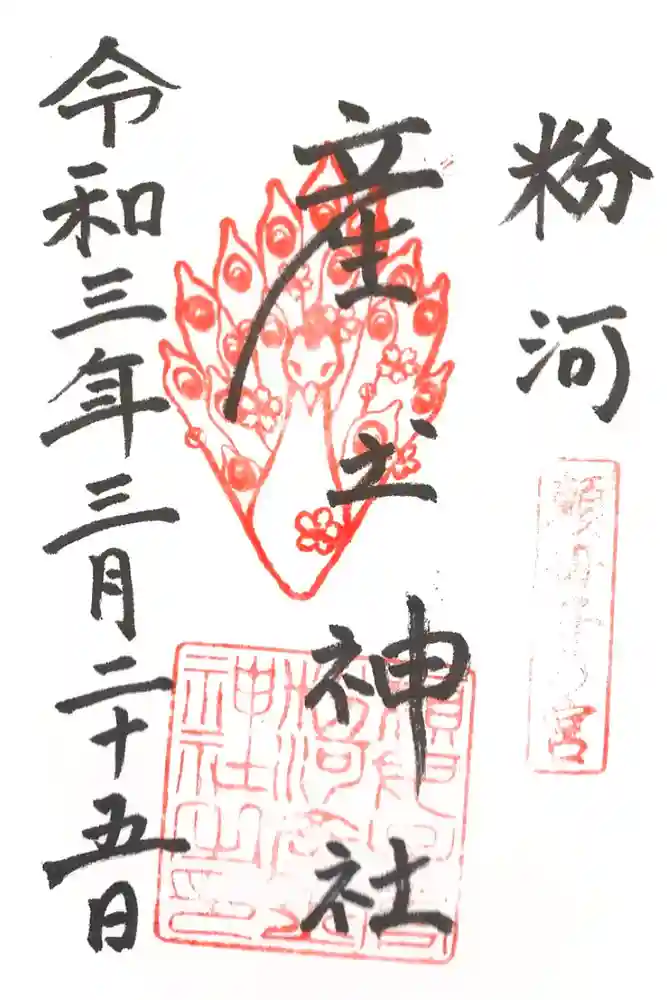 粉河
宮
産土神社
神社之印
令和三年三月二十五日